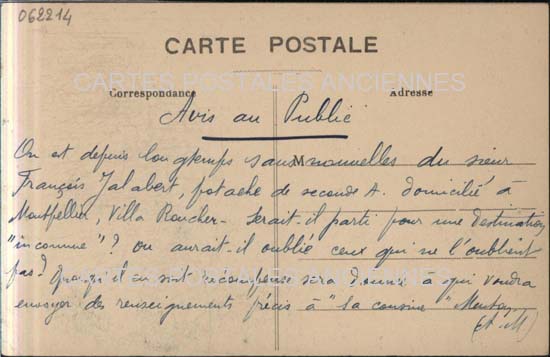 062214
CARTE POSTALE
CARTES POSTALES ANCIENNES
Correspondance
Adresse
Avis au Public
On est depuis longtemps sans nouvelles du sieur
M
François Jalabert, potache de seconde A. domicilié à
Montpellier, Villa Roucher - Serait-il parti pour une destination
"inconnue"? ou aurait-il oublié ceux qui ne l'oublient
pas? Quoiqu'il en soit récompense sera donnée à qui voudra
CARTES POSTALES ANCIENNES
envoyer des renseignements précis à "la cousine"
(A. M)